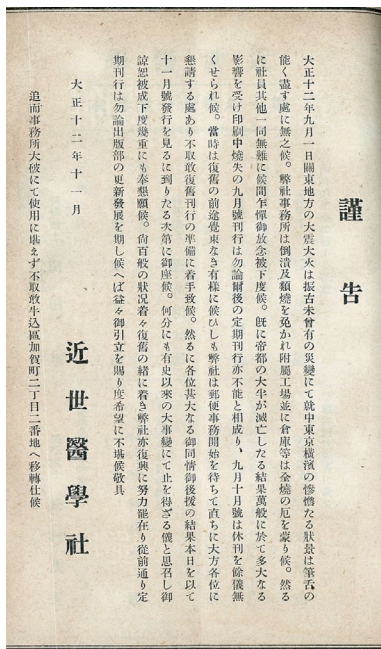 謹告
大正十二年九月一日關東地方の大震大火は振古未曾有の災變にて就中東京橫濱の慘憺たる狀景は筆舌の
能く盡す處に無之候。弊社事務所は倒潰及類燒を免かれ附屬工場並に倉庫等は全燒の厄を蒙り候。然る
に社員其他一同無難に候間乍憚御放念被下度候。旣に帝都の大半が滅亡したる結果萬般に於て多大なる
影響を受け印刷中燒失の九月號刊行は勿論爾後の定期刊行亦不能と相成り、九月十月號は休刊を餘儀無
くせられ候。當時は復舊の前途覺束なき有樣に候ひしも弊社は郵便事務開始を待ちて直ちに大方各位に
懇請する處あり不取敢復舊刊行の準備に着手致候。然るに各位甚大なる御同情御後援の結果本日を以て
十一月號發行を見るに到りたる次第に御座候。何分にも有史以來の大事變にて止を得ざる儀と思召し御
諒恕被成下度幾重にも奉懇願候。尙百般の狀況着々復舊の緖に着き弊社亦復興に努力罷在り從前通り定
期刊行は勿論出版部の更新發展を期し候へば益々御引立を賜り度希望に不堪候敬具
大正十二年十一月
近世醫學社
追而事務所大破にて使用に堪えず不取敢牛込區加賀町二丁目二番地へ移轉仕候